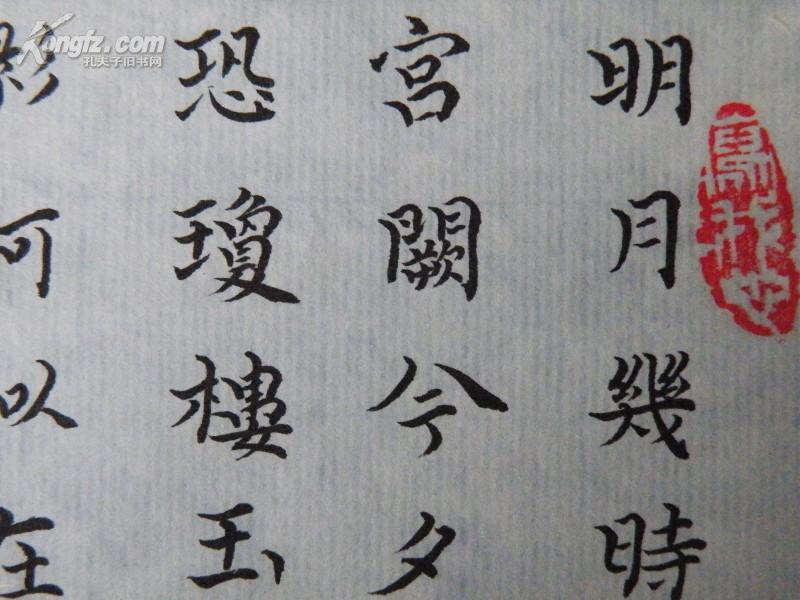 明月幾時
宮闕今夕
恐瓊樓玉
影可以在
Kongfz.com
孔夫子旧书网